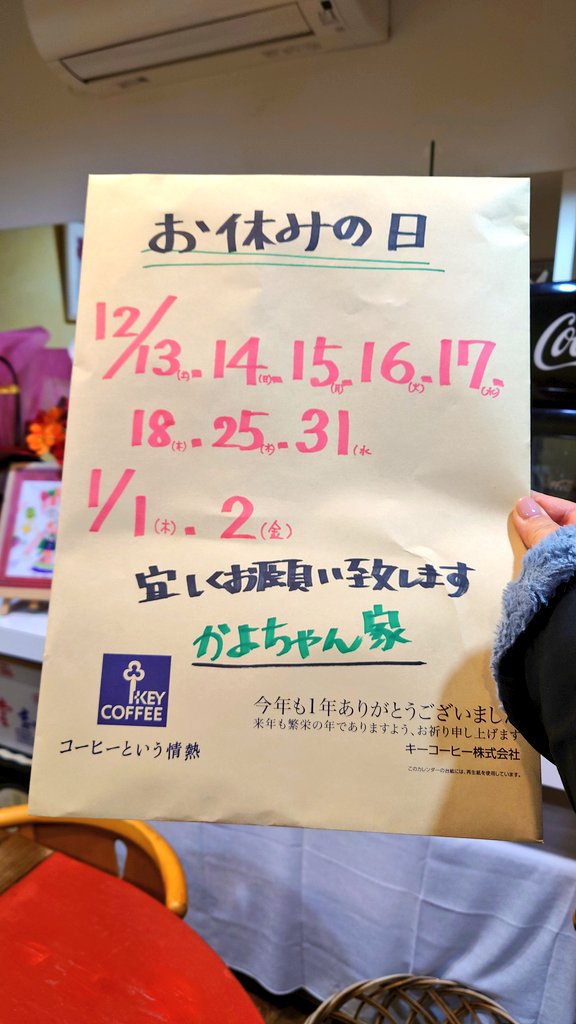 お休みの日
12/13(土)・14(日)・15(月)・16(火)・17(水)・
18(木)・25(木)・31(水
1/1(木)・2(金)
宜しくお願い致します
かよちゃん家
KEY
COFFEE
コーヒーという情熱
今年も1年ありがとうございまし
来年も繁栄の年でありますよう、お祈り申し上げます
キーコーヒー株式会社
このカレンダーの台紙には、再生紙を使用しています。
Co